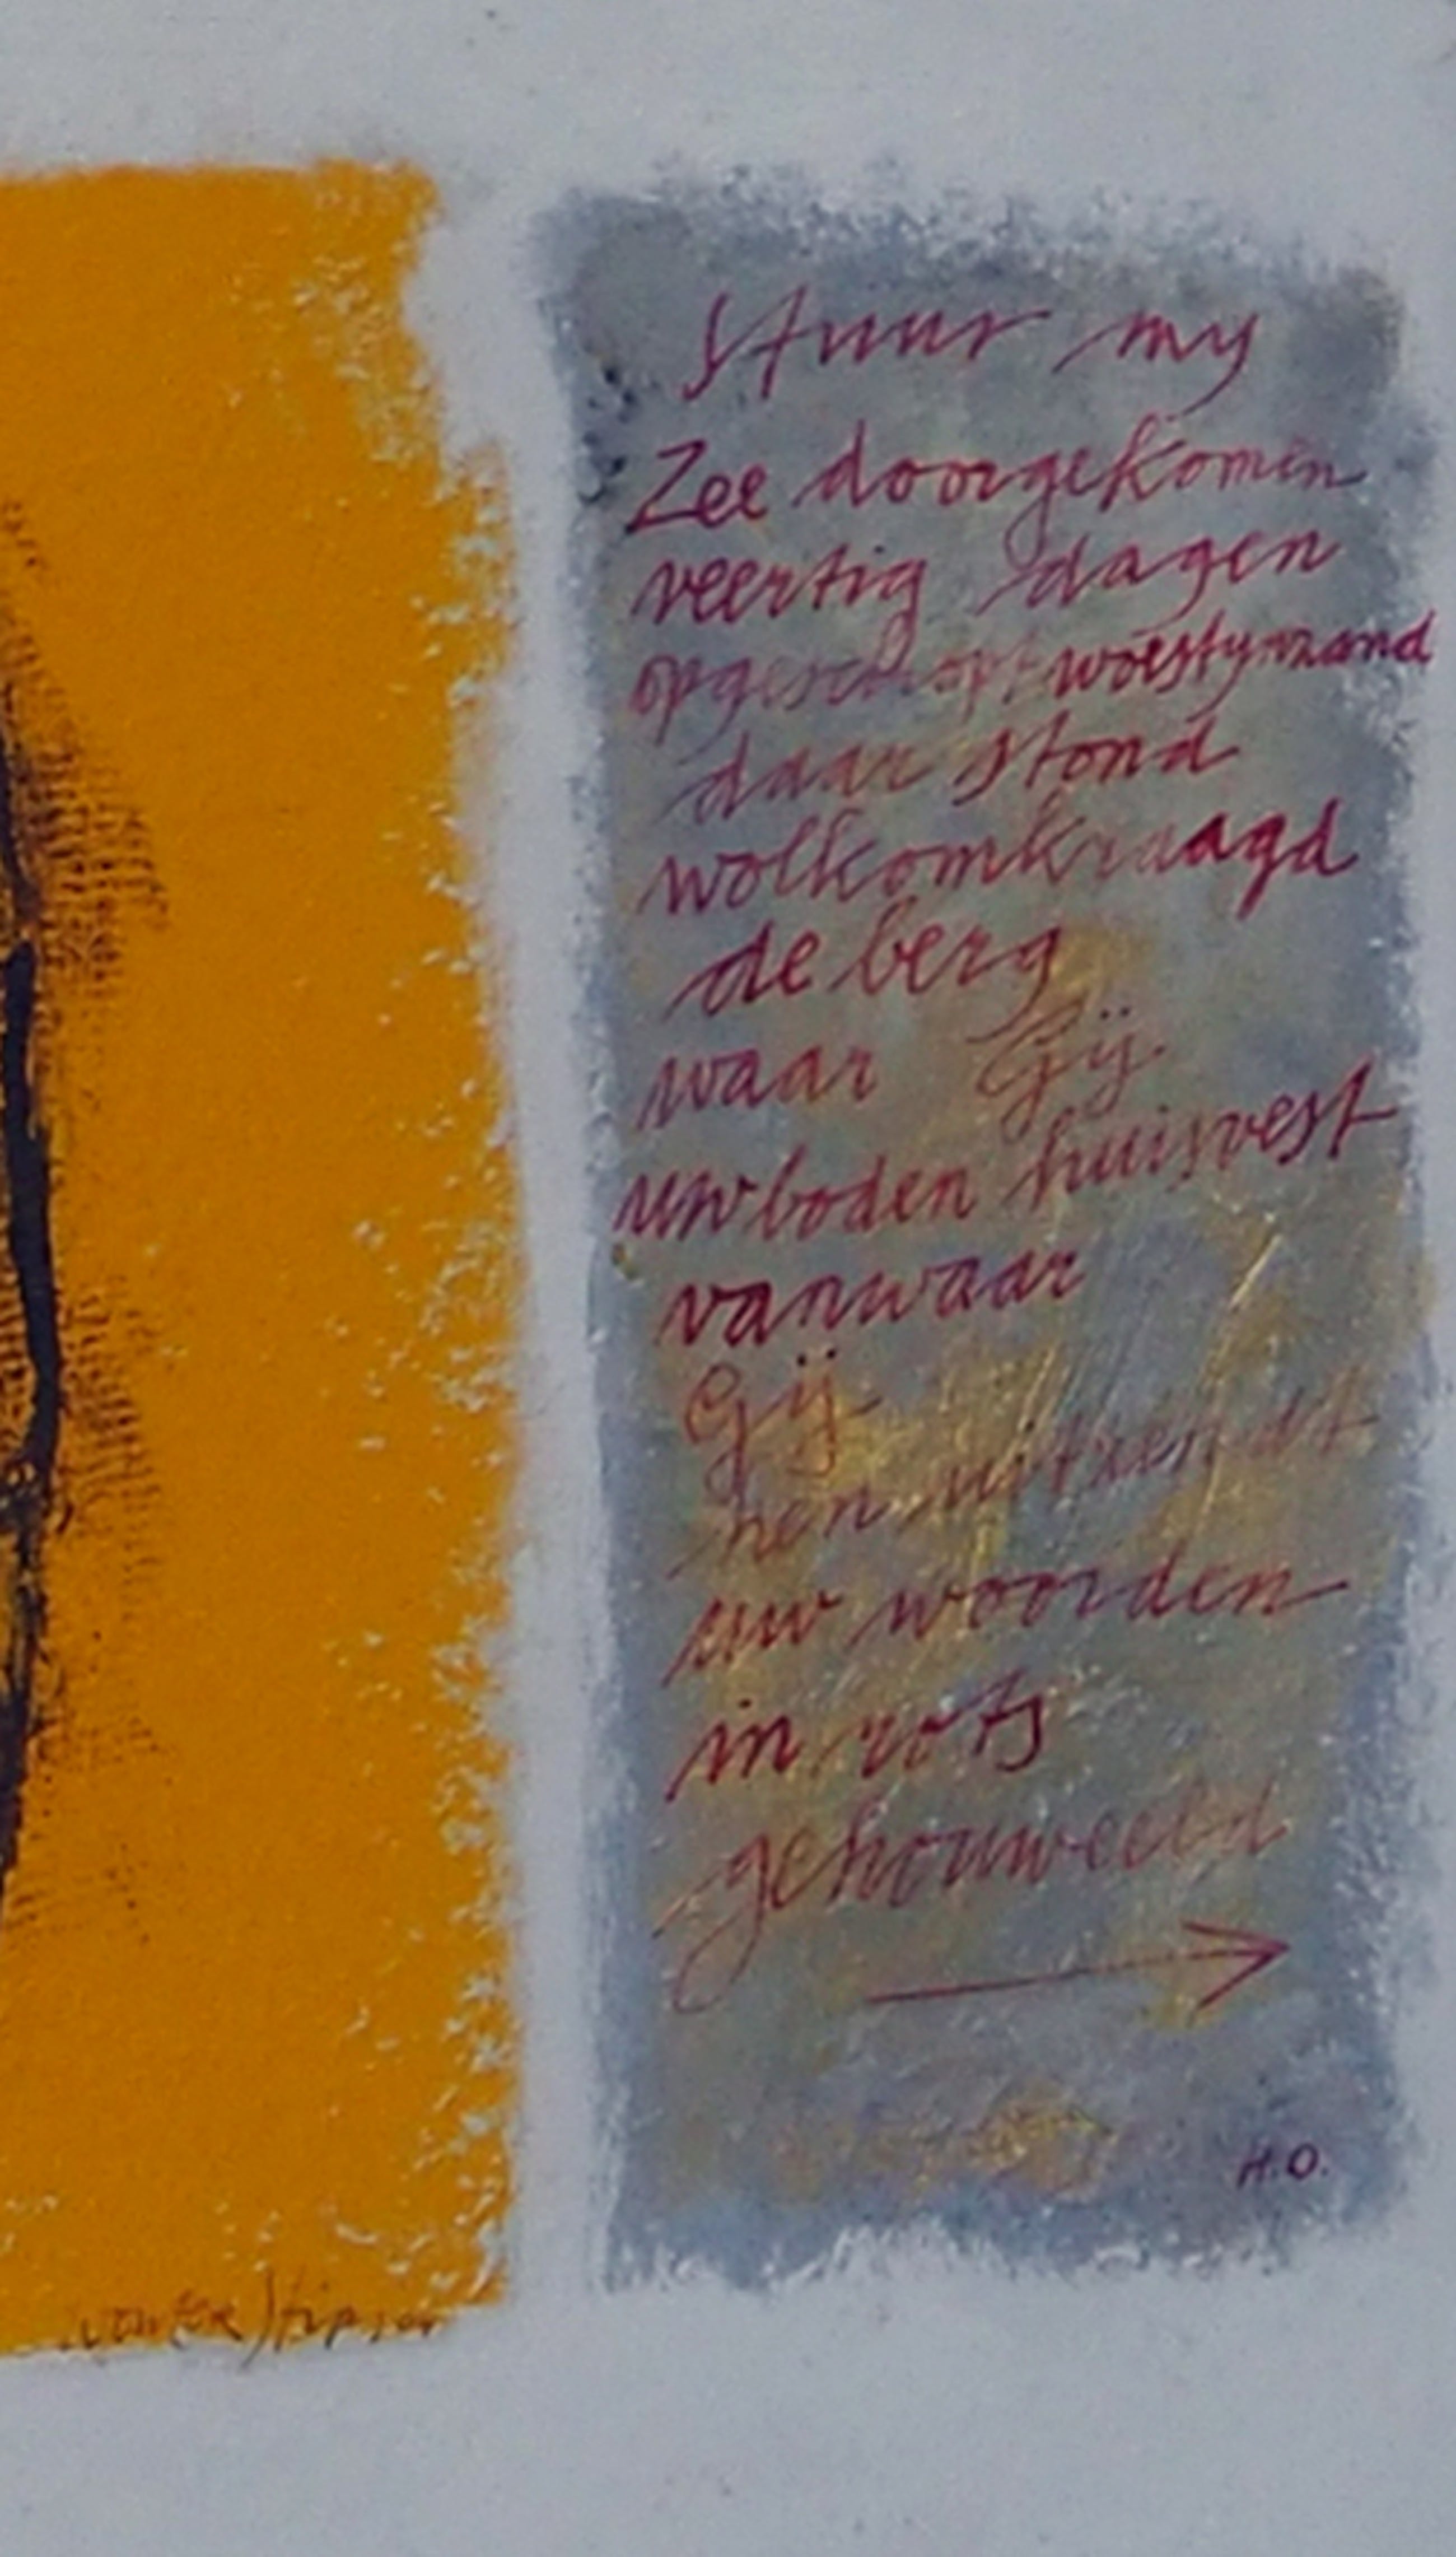 Stuur my
Zee doorgekomen
veertig dagen
opgeschopt woestynzand
daar stond
wolkomkraagd
de berg
waar Gij
uw boden huisvest
vanwaar
Gij
hen uitzendt
uw woorden
in rots
gehouweeld
→
H.O.